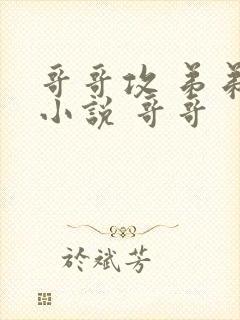 哥哥攻 弟弟
小說 哥哥
於斌芳